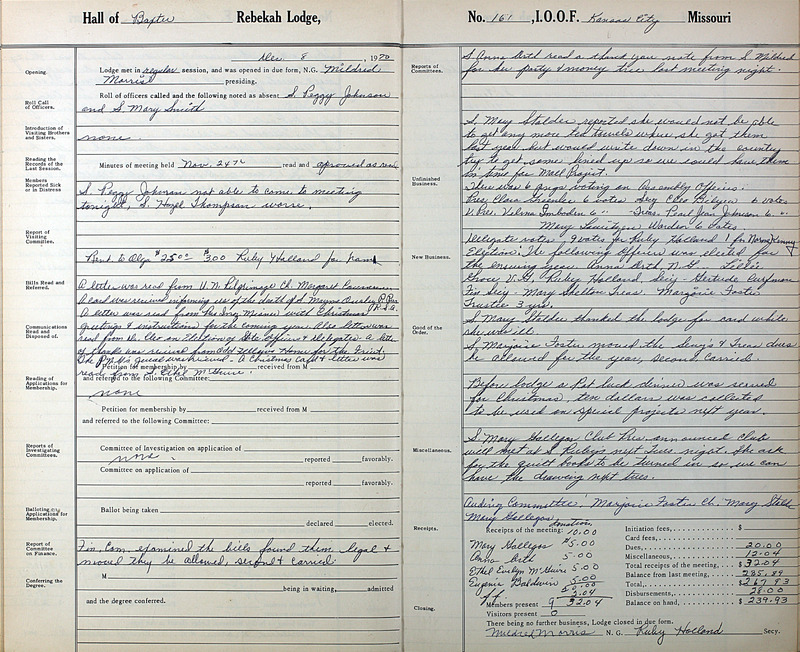 Hall of Baxter Rebekah Lodge,
Dec. 8, 1970
Opening.
Lodge met in regular session, and was opened in due form, N.G. Mildred
Morris presiding.
Roll Call
of Officers.
Roll of officers called and the following noted as absent S. Peggy Johnson
and S. Mary Smith
Introduction of
Visiting Brothers
and Sisters.
none.
Reading the
Records of the
Last Session.
Minutes of meeting held Nov. 24th read and approved as read
Members
Reported Sick
or in Distress
S. Peggy Johnson not able to come to meeting
tonight, S. Hazel Thompson worse.
Report of
Visiting
Committee.
Bills Read and
Referred.
Rent to Algs $25.00 $3.00 Ruby Holland for ham
Communications
Read and
Disposed of.
A letter was read from U.N. Pilgrimage Ch. Margaret
A card was received informing us of the death of
A letter was read from the with Christmas
greetings & instructions for the coming year. Also letter was
read from on Election of State Officers & Delegates. A letter
of thanks was received from Odd Fellows Home for the
was received. A Christmas card & letter was
read from S. Ethel McGuire.
Reading of
Applications for
Membership.
Petition for membership by received from M
and referred to the following Committee:
none
Petition for membership by received from M
and referred to the following Committee:
Reports of
Investigating
Committees.
Committee of Investigation on application of
none. reported favorably.
Committee on application of
reported favorably.
Balloting on
Applications for
Membership.
Ballot being taken
declared elected.
Report of
Committee
on Finance.
Fin. Com. examined the bills found them legal &
moved they be allowed, second & carried.
Conferring the
Degree.
M being in waiting, admitted
and the degree conferred.
No. 161, I.O.O.F. Kansas City Missouri
Reports of
Committees.
S. Anna Orth read a thank you note from S. Mildred
for her party & money tree last meeting night.
Unfinished
Business.
S. Mary Stalder reported she would not be able
to get any more tea towels where she got them
last year but would write down in the country
try to get some lined up so we could have them
in time for Mall Project.
There was 6 voting on Assembly Officers.
Pres. Clara 6 votes Secy Cleo Belyea 6 votes
V. Pres. Velma Imboden 6 " Treas. Pearl Jean Johnson 6 "
Mary Warden 6 votes
New Business.
Delegate votes, 9 votes for Ruby Holland 1 for Norma Kenney
Election: The following officers was elected for
the ensuing year Anna Orth N.G. Lillie
V.G. Ruby Holland, Secy - Gertrude
Fin Secy - Mary Shelton Treas - Marjorie Foster
Trustee 3 yrs.
Good of the
Order.
S. Mary Stalder thanked the lodge for card while
she was ill.
S. Marjorie Foster moved the Secy's & Treas dues
be allowed for the year, second carried.
Before lodge a Pot luck dinner was served
for Christmas, ten dollars was collected
to be used on special projects next year.
Miscellaneous.
S. Mary Gallegos Club Pres. announced club
will meet at S. Ruby's next Tues. night. She ask
for the quilt books to be turned in so we can
have the drawing next Tues.
Auditing Committee: Marjorie Foster Ch. Mary Stalder
Mary Gallegos
Receipts.
Receipts of the meeting: donation 10.00
Mary Gallegos $5.00
Anna Orth 5.00
Ethel Evelyn McGuire 5.00
Eugenia Baldwin 5.00
2.04
32.04
Initiation fees, $
Card fees,
Dues, 20.00
Miscellaneous, 12.04
Total receipts of the meeting, $32.04
Balance from last meeting, 235.89
Total, $267.93
Disbursements, 28.00
Balance on hand, $239.93
Members present 9
Visitors present 0
Closing.
There being no further business, Lodge closed in due form.
Mildred Morris N. G. Ruby Holland Secy.